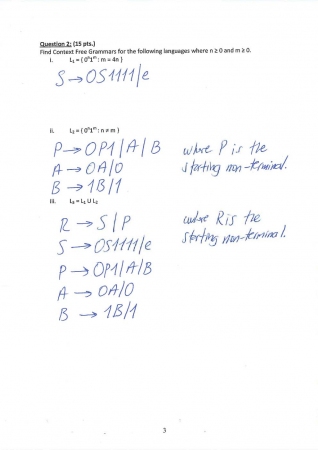 Question 2: (15 pts.)
Find Context Free Grammars for the following languages where n ≥ 0 and m ≥ 0.
i. L₁ = { 0ⁿ1ᵐ : m = 4n }
S → 0S1111/e
ii. L₂ = { 0ⁿ1ᵐ : n ≠ m }
P → 0P1/A/B where P is the
A → 0A/0 starting non-terminal.
B → 1B/1
iii. L₃ = L₁ U L₂
R → S/P where R is the
S → 0S1111/e starting non-terminal.
P → 0P1/A/B
A → 0A/0
B → 1B/1
3